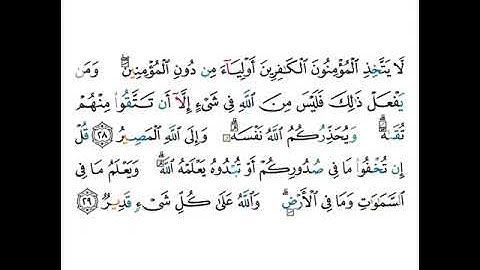 لَا يَتَّخِذِ الْمُؤْمِنُونَ الْكَافِرِينَ أَوْلِيَاءَ مِن دُونِ الْمُؤْمِنِينَ ۖ وَمَن
يَفْعَلْ ذَٰلِكَ فَلَيْسَ مِنَ اللَّهِ فِي شَيْءٍ إِلَّا أَن تَتَّقُوا مِنْهُمْ
تُقَاةً ۗ وَيُحَذِّرُكُمُ اللَّهُ نَفْسَهُ ۗ وَإِلَى اللَّهِ الْمَصِيرُ ﴿٢٨﴾ قُلْ
إِن تُخْفُوا مَا فِي صُدُورِكُمْ أَوْ تُبْدُوهُ يَعْلَمْهُ اللَّهُ ۗ وَيَعْلَمُ مَا فِي
السَّمَاوَاتِ وَمَا فِي الْأَرْضِ ۗ وَاللَّهُ عَلَىٰ كُلِّ شَيْءٍ قَدِيرٌ ﴿٢٩﴾